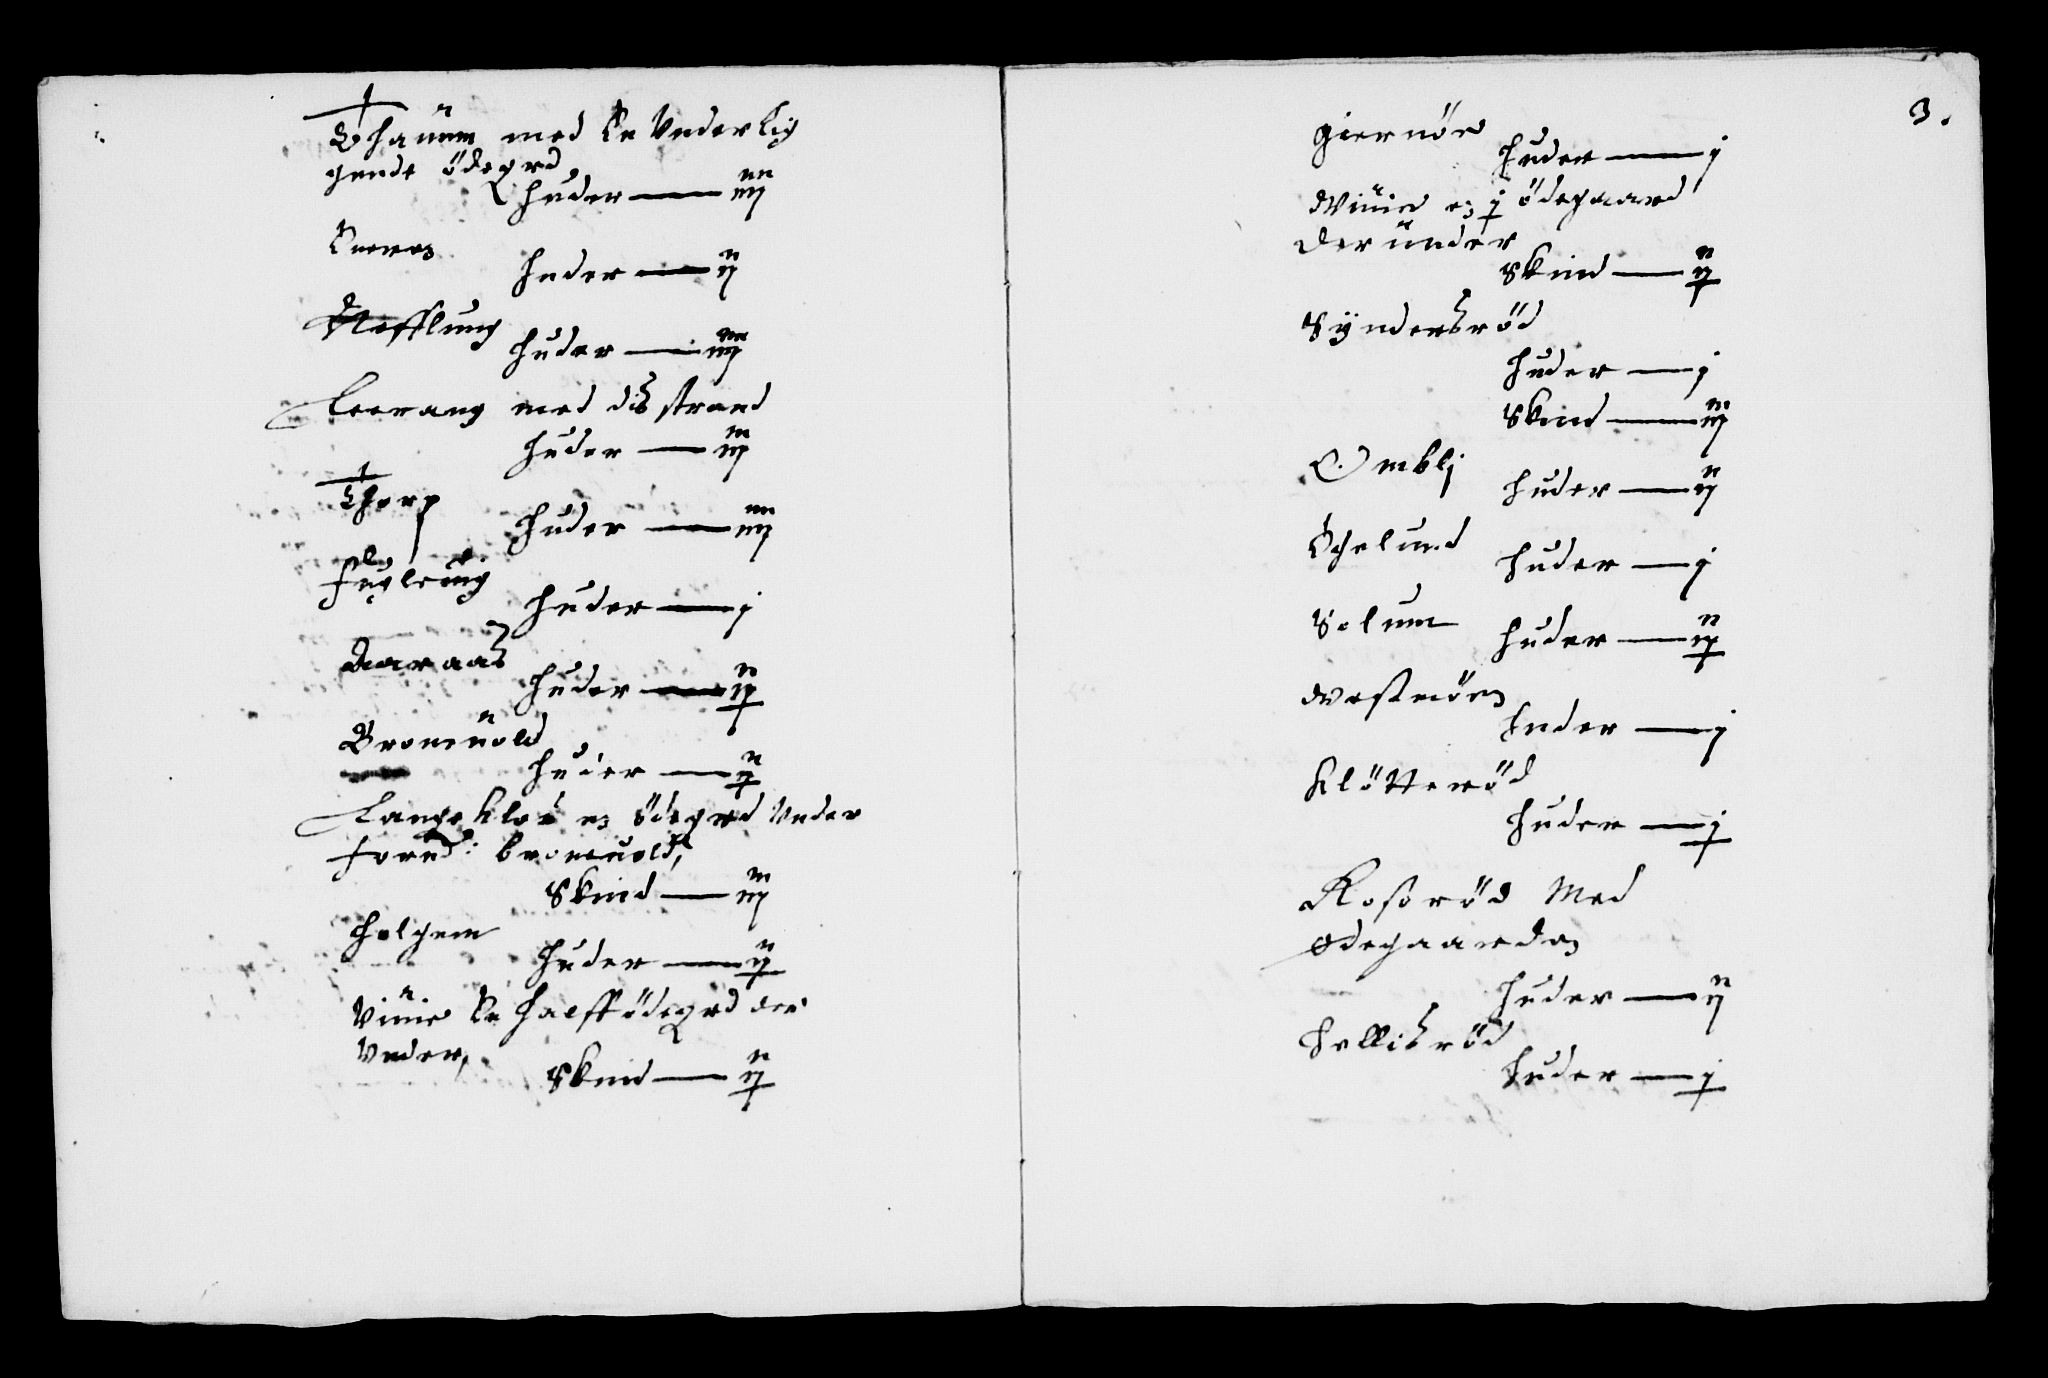 Thaüum med En Vnderlig
gende ödegrd
Huder — iiij
Huder — ij
Nefflung
Huder — iiij
Leerang med diß strand
Huder — iij
Thorp
Huder — iiij
Fugleüig
Huder — j
Aaraas
Huder — ij
Bronüold
Huder — ij
Langekloe en ödegrd Vnder
forud: bronuold,
Skind — iij
Holgem
Huder — ij
Viüie En halff ödegrd der
Vnder,
Skind — ij
3.
giernöe
Huder — j
Wiüie en j ödegaard
der ünder
Skind — ij
Syndersröd
Huder — j
Skind — iij
Ombli
Huder — ij
Ögelund
Huder — j
Solum
Huder — ij
Westnöen
Huder — j
Klötteröd
Huder — j
Rosßröd Med
ødegaarden
Huder — ij
Hellisröd
Huder — j